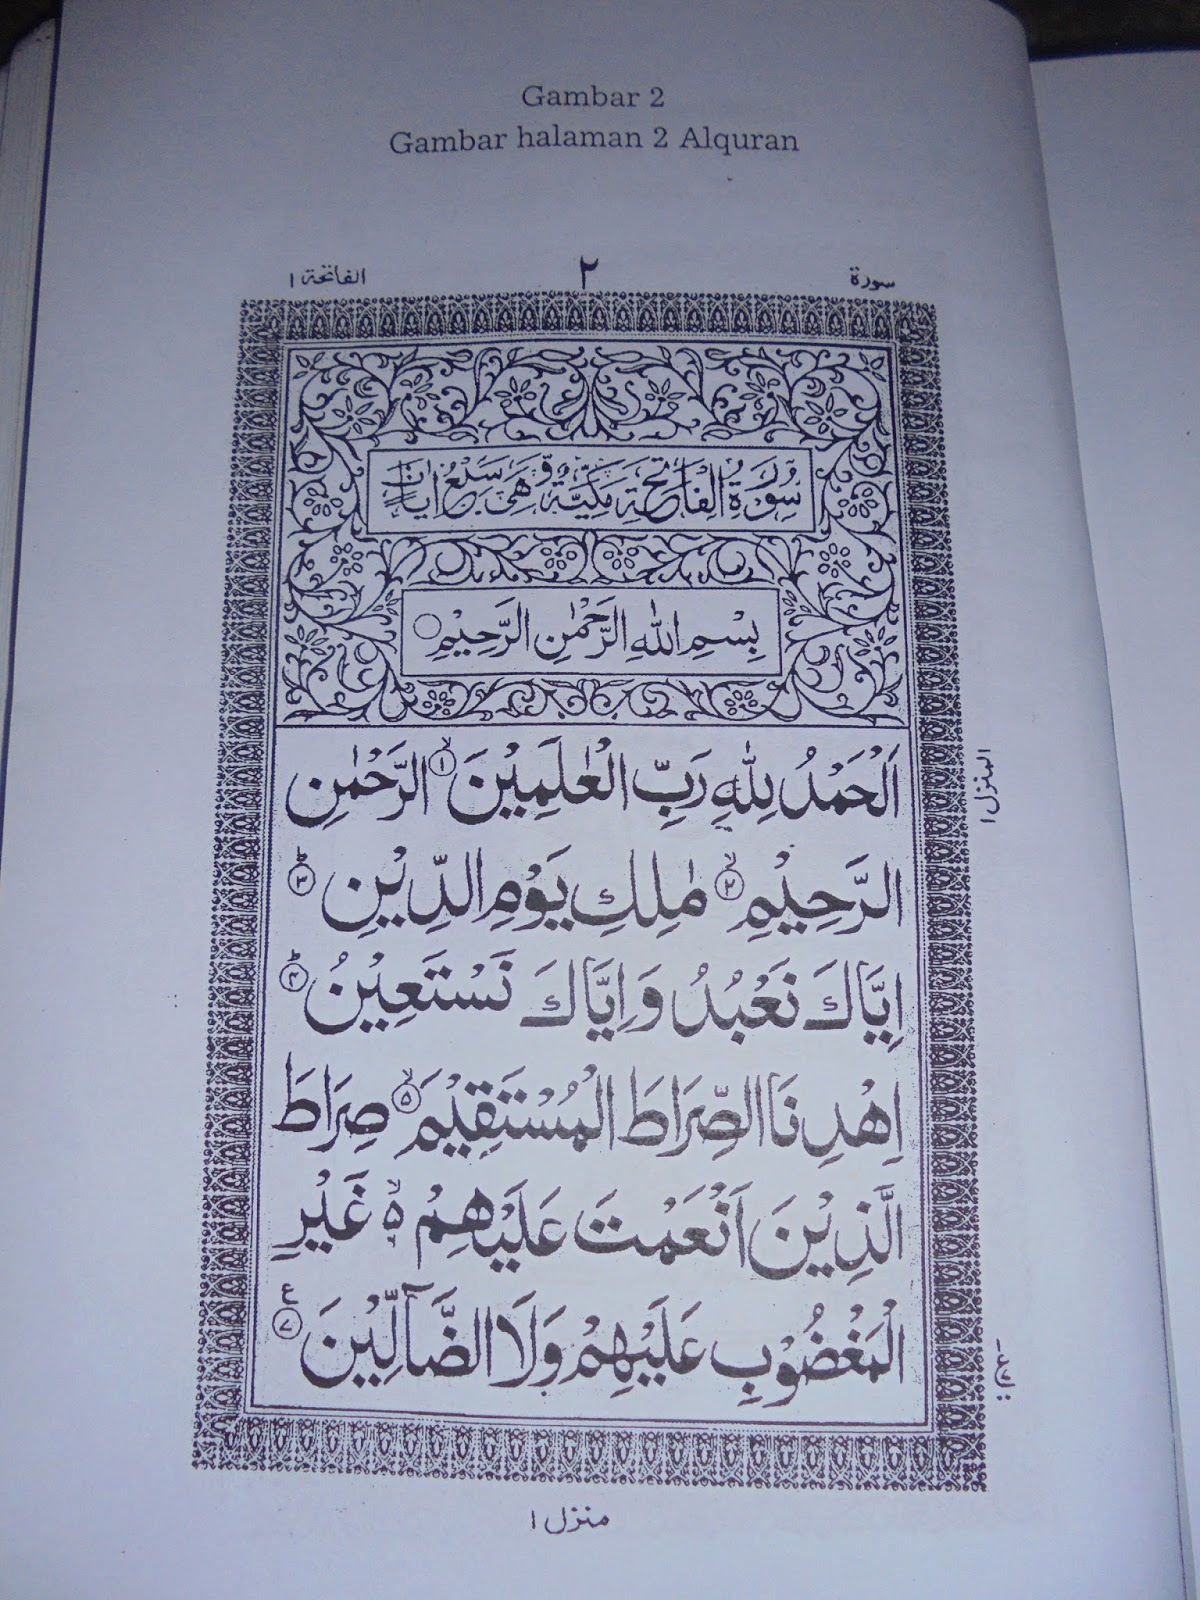 Gambar 2
Gambar halaman 2 Alquran
سورة ٢ الفاتحة ١
سُوْرَةُ الْفَاتِحَةِ مَكِّيَّةٌ وَّهِيَ سَبْعُ اٰيَاتٍ
بِسْمِ اللّٰهِ الرَّحْمٰنِ الرَّحِيْمِ ○
اَلْحَمْدُ لِلّٰهِ رَبِّ الْعٰلَمِيْنَ ۙ ١ الرَّحْمٰنِ
الرَّحِيْمِ ۙ ٢ مٰلِكِ يَوْمِ الدِّيْنِ ؕ ٣
اِيَّاكَ نَعْبُدُ وَاِيَّاكَ نَسْتَعِيْنُ ؕ ٤
اِهْدِنَا الصِّرَاطَ الْمُسْتَقِيْمَ ۙ ٥ صِرَاطَ
الَّذِيْنَ اَنْعَمْتَ عَلَيْهِمْ ۙ ە غَيْرِ
الْمَغْضُوْبِ عَلَيْهِمْ وَلَا الضَّآلِّيْنَ ٧ ع
المنزل ١
منزل ١